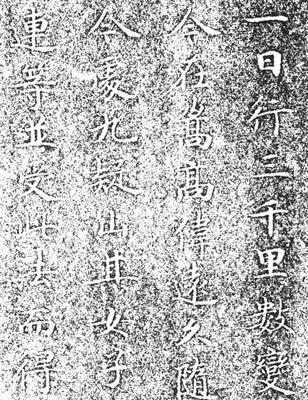 一日行三千里數變
今在嵩高偉遠久隨
今處九疑山其女子
連等並受此法而得